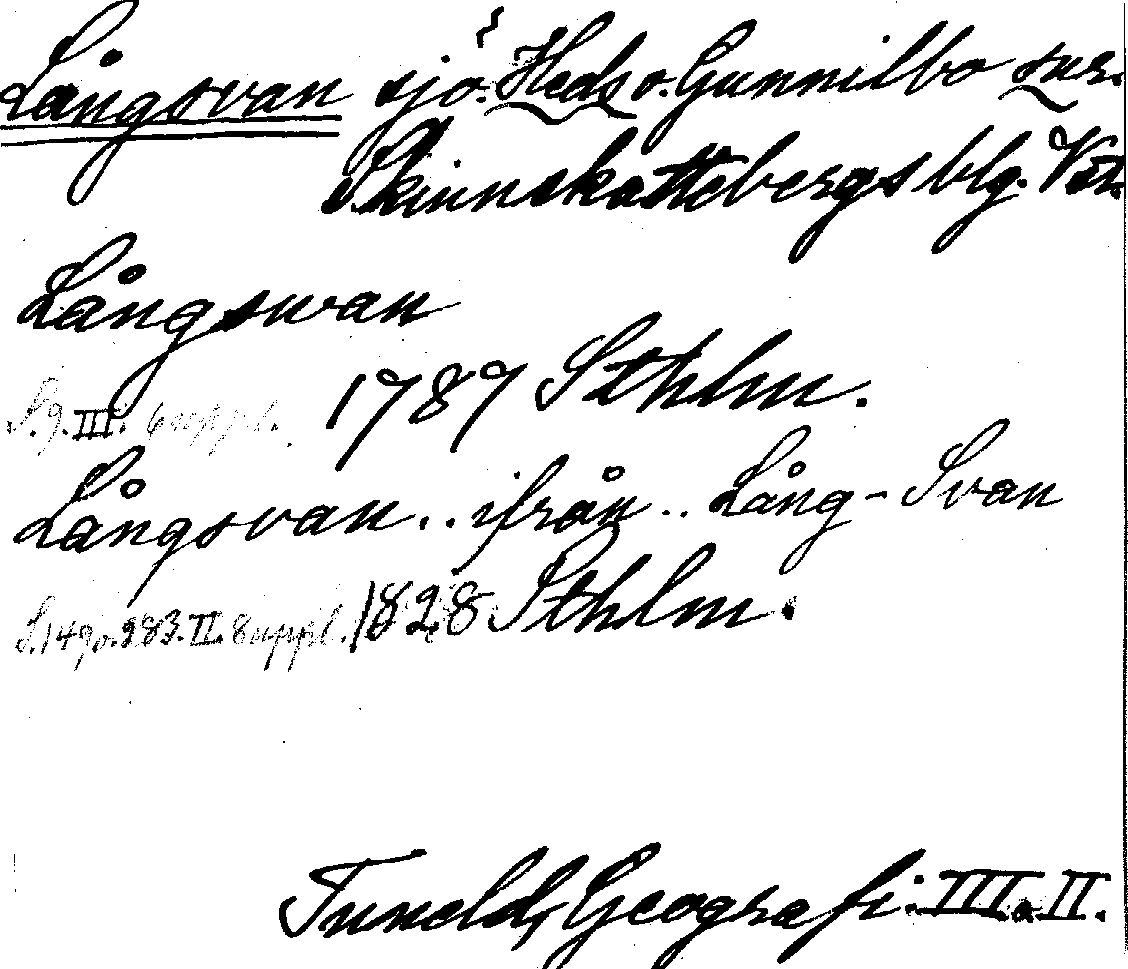 Långsvan sjö. Heds o. Gunnilbo snr.
Skinnskattebergs blg. Vstm.
Långswan
S. 9. III. 6 uppl. 1787 Sthlm.
Långsvan.. ifrån.. Lång-Svan
S. 149 o. 283. II. 8 uppl. 1828 Sthlm.
Tuneld, Geografi. III o. II.